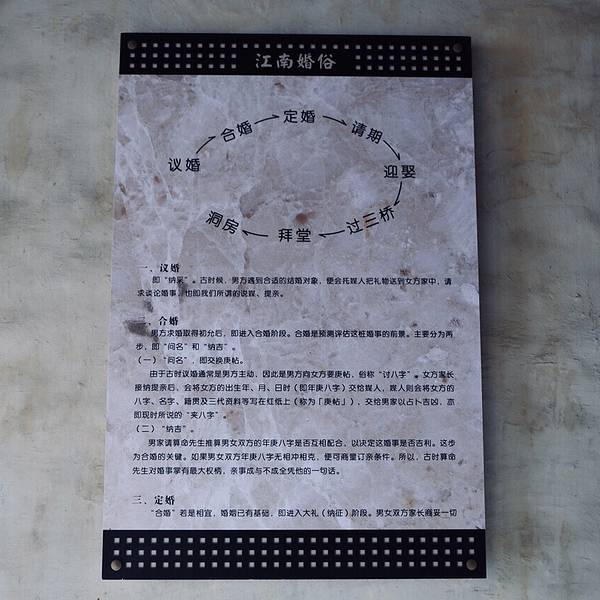 江南婚俗
议婚
合婚
定婚
请期
迎娶
过三桥
拜堂
洞房
一、议婚
即“纳采”。古时候，男方遇到合适的结婚对象，便会托媒人把礼物送到女方家中，请
求谈论婚事，也即我们所谓的说媒、提亲。
二、合婚
男方求婚取得初允后，即进入合婚阶段。合婚是预测评估这桩婚事的前景。主要分为两
步，即“问名”和“纳吉”。
（一）“问名”，即交换庚帖。
由于古时议婚通常是男方主动，因此是男方向女方要庚帖，俗称“讨八字”。女方家长
接纳提亲后，会将女方的出生年、月、日时（即年庚八字）交给媒人，媒人则会将女方的
八字、名字、籍贯及三代资料等写在红纸上（称为「庚帖」），交给男家以占卜吉凶，亦
即现时所说的“夹八字”。
（二）“纳吉”。
男家请算命先生推算男女双方的年庚八字是否互相配合，以决定这婚事是否吉利。这步
为合婚的关键。如果男女双方年庚八字无相冲相克，便可商量订亲条件。所以，古时算命
先生对婚事掌有最大权柄，亲事成与不成全凭他的一句话。
三、定婚
“合婚”若是相宜，婚姻已有基础，即进入大礼（纳征）阶段。男女双方家长商妥一切